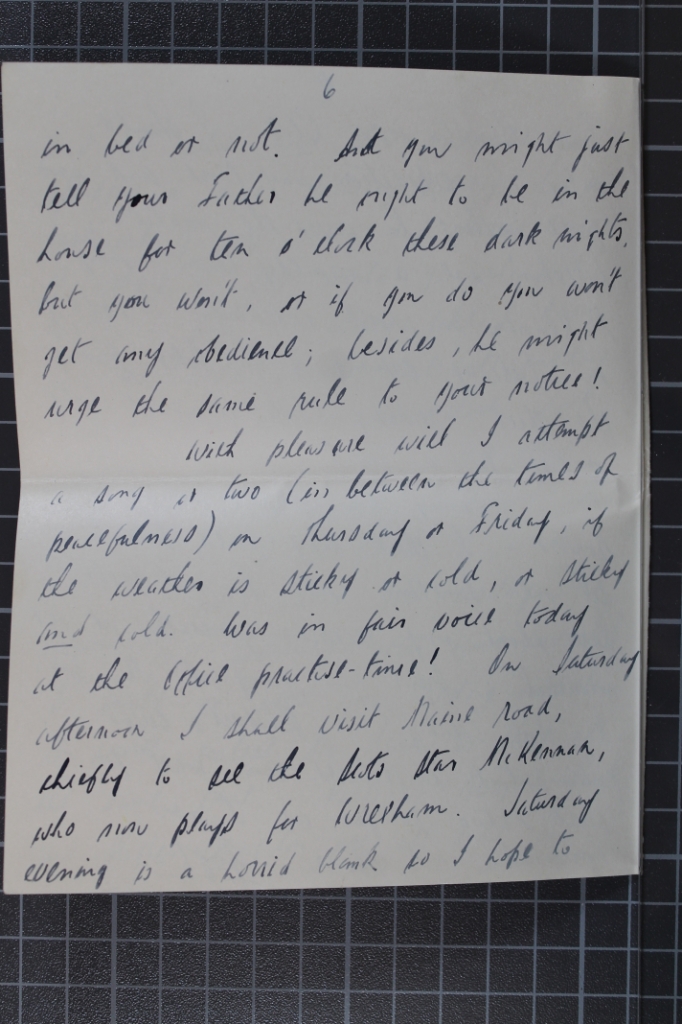 6
in bed or not. And you might just
tell your Father he ought to be in the
house for ten o'clock these dark nights,
but you won't, or if you do you won't
get any obedience; besides, he might
urge the same rule to your notice!
With pleasure will I attempt
a song or two (in between the times of
peacefulness) on Thursday or Friday, if
the weather is sticky or cold, or sticky
and cold. Was in fair voice today
at the Office practise-time! On Saturday
afternoon I shall visit Maine road,
chiefly to see the Scots star McKennan,
who now plays for Wrexham. Saturday
evening is a horrid blank so I hope to